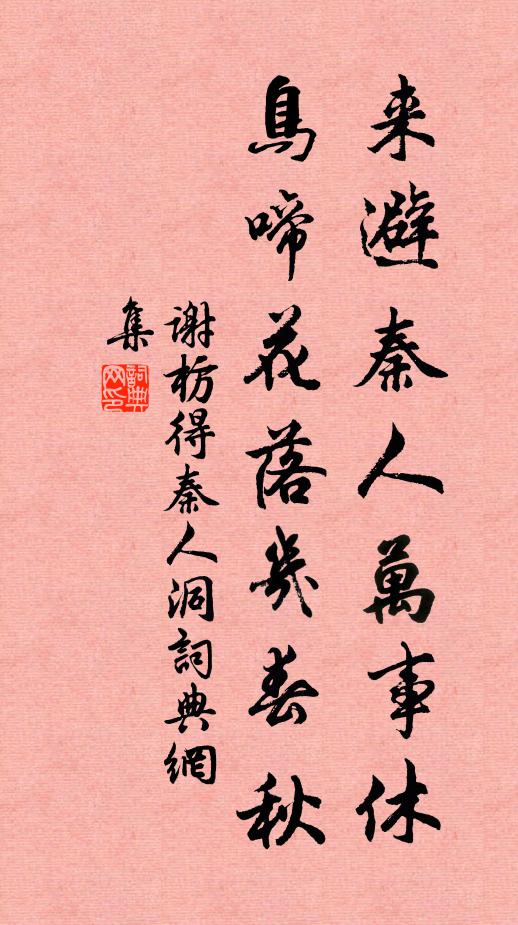 来避秦人萬事休
鳥啼花落幾春秋
谢枋得秦人洞詞典網
集
詞典网印